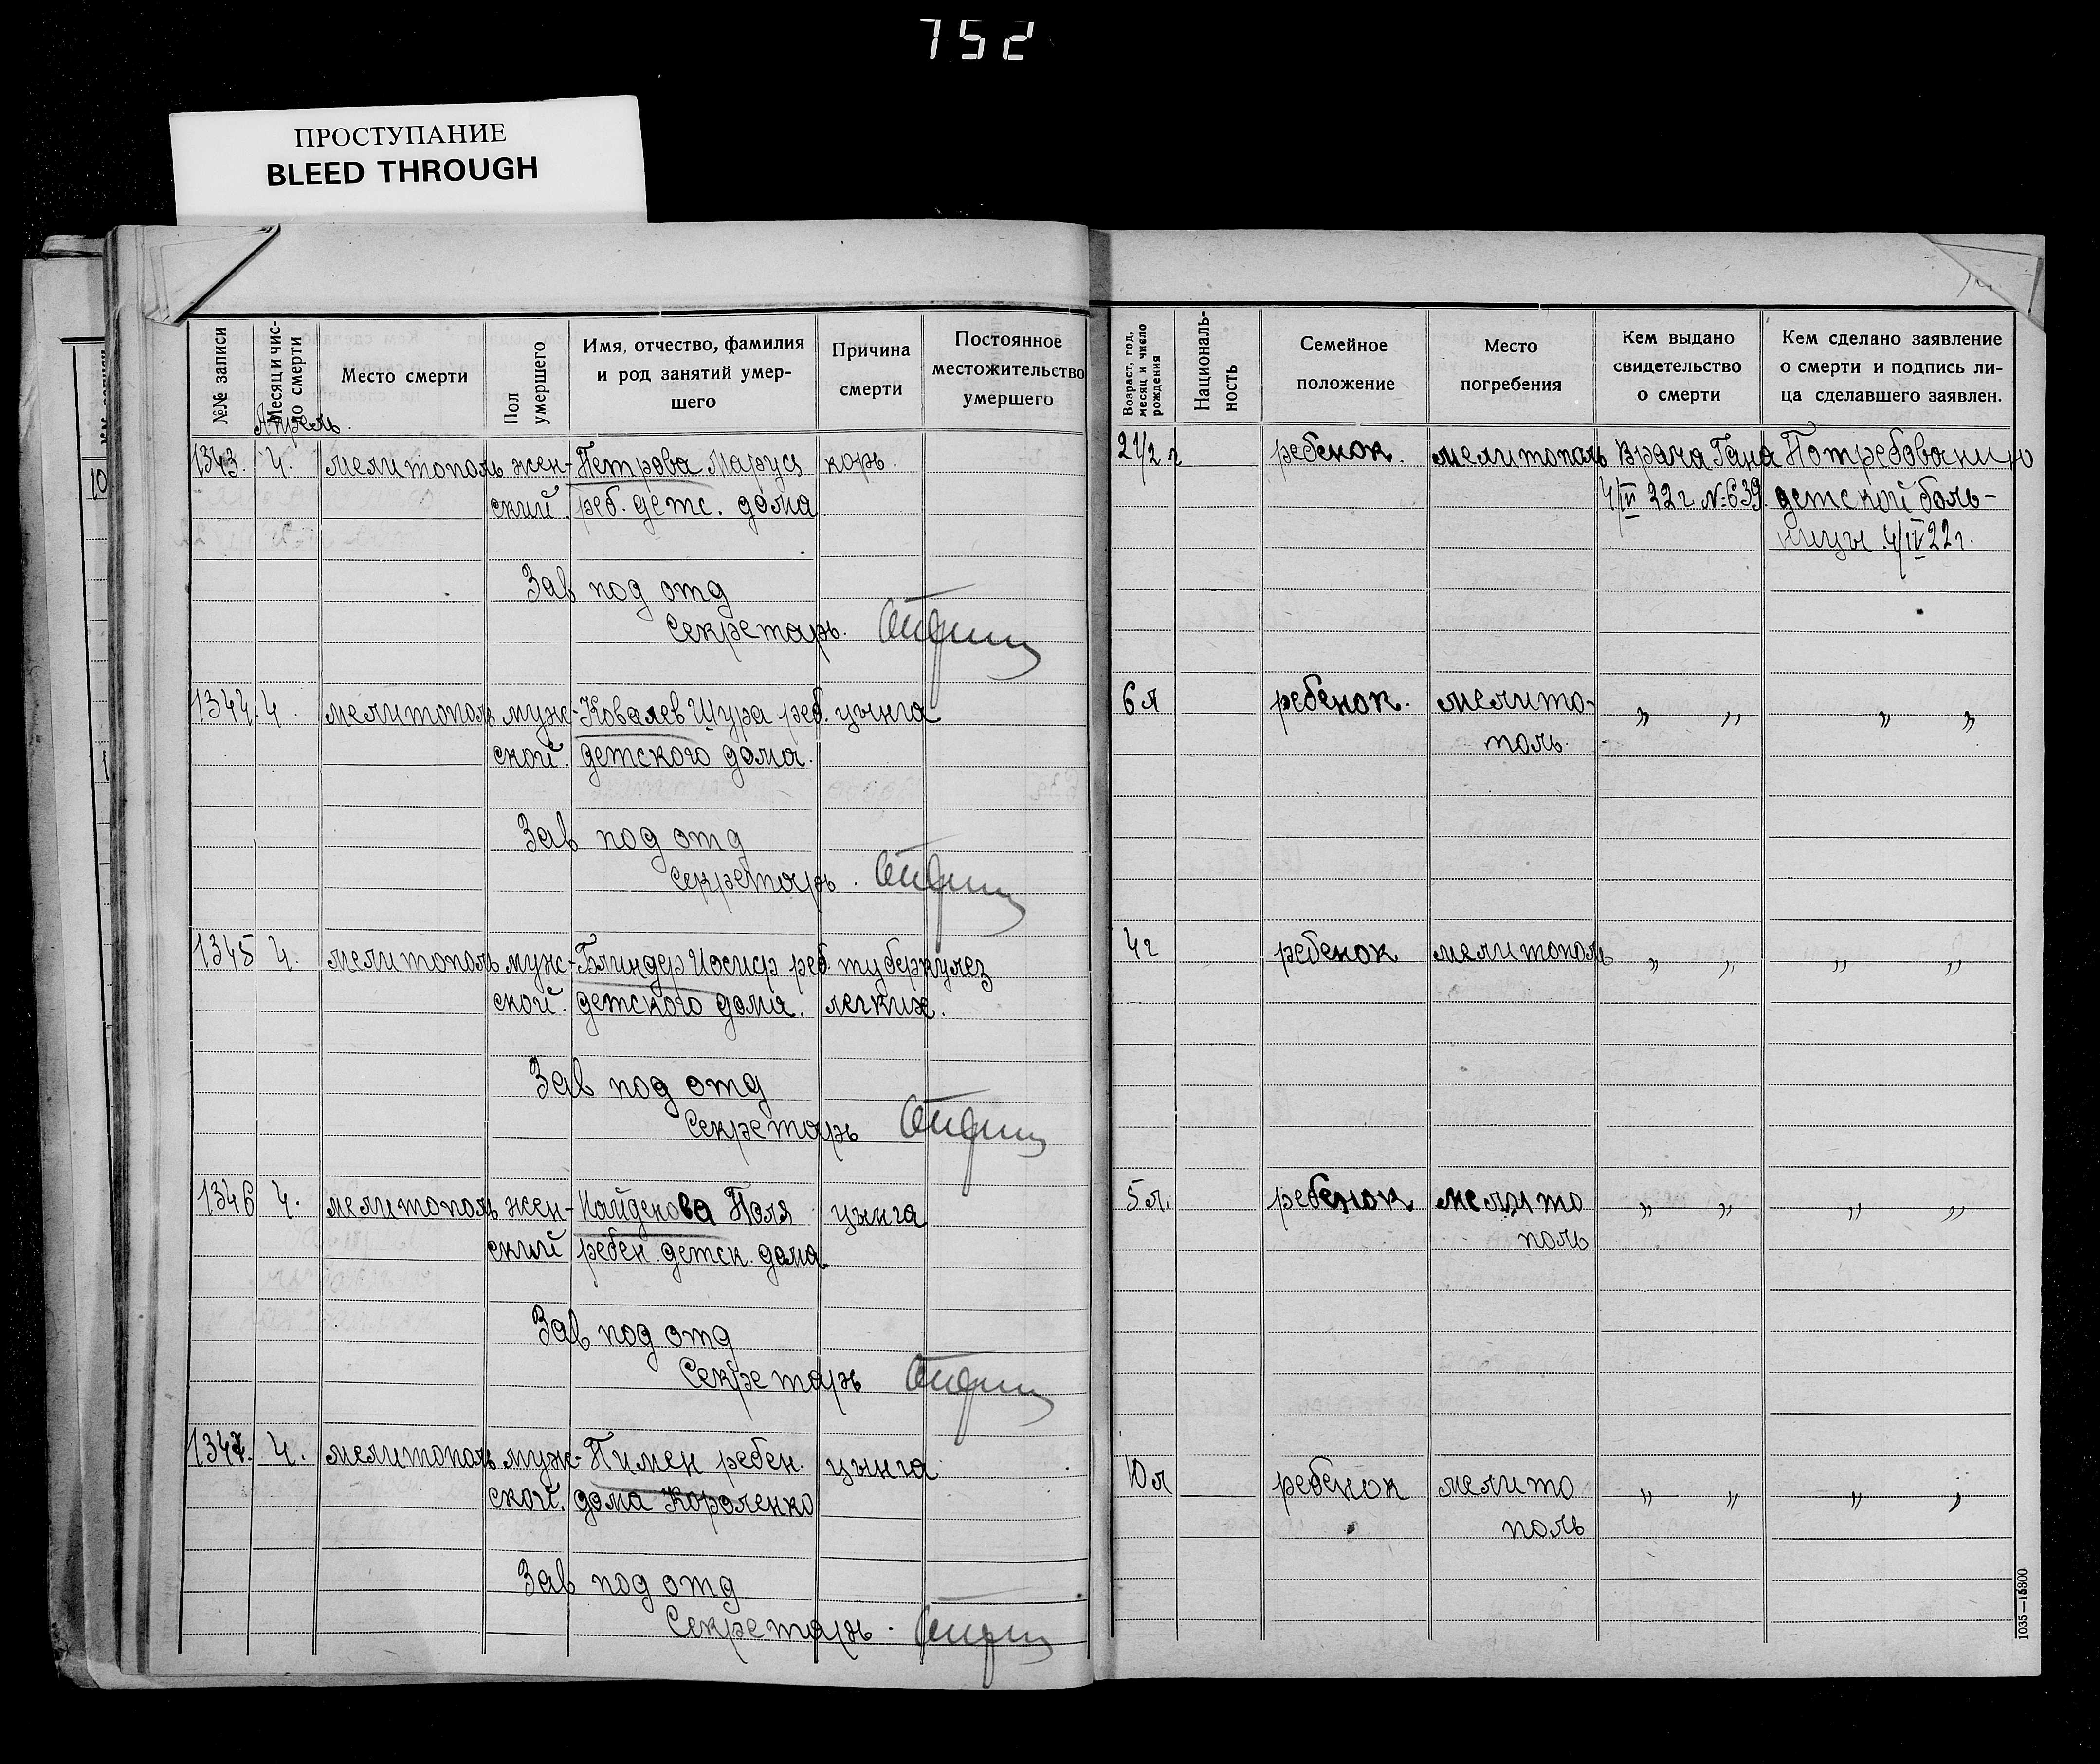 752
ПРОСТУПАНИЕ
BLEED THROUGH
№№ записи
Месяц и число смерти
Место смерти
Пол умершего
Имя, отчество, фамилия
и род занятий умер-
шего
Причина
смерти
Постоянное
местожительство
умершего
Возраст, год, месяц и число рождения
Националь-
ность
Семейное
положение
Место
погребения
Кем выдано
свидетельство
о смерти
Кем сделано заявление
о смерти и подпись ли-
ца сделавшего заявлен.
Апрель.
1343. 4. мелитополь жен- Петрова Маруся корь. 2 1/2 г ребенок. мелитополь Врача Гана По требованию
ский. реб. детс. дома 4/IV 22 г №639. детской боль-
ницы 4/IV 22 г.
Зав под отд
Секретарь.
1344. 4. мелитополь муж- Ковалев Шура реб. цынга 6 л ребенок. мелито- „ „ „ „
ской. детского дома. поль.
Зав под отд
Секретарь.
1345 4. мелитополь муж- Блиндер Иосиф реб. туберкулез 4 г ребенок мелитополь „ „ „ „
ской. детского дома. легких.
Зав под отд
Секретарь
1346 4. мелитополь жен- Найденова Поля цынга 5 л. ребенок мелито „ „ „ „
ский ребен. детск. дома поль
Зав под отд
Секретарь
1347. 4. мелитополь муж- Пимен ребен. цынга 10 л ребенок мелито „ „ „ „
ской. дома Короленко поль
Зав под отд
Секретарь.
1035—15800